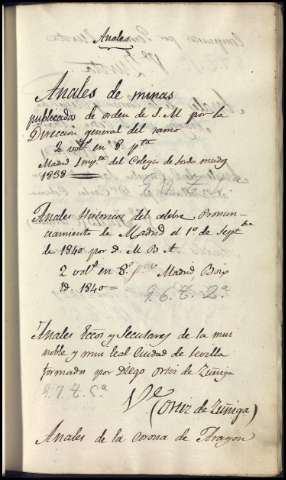 Anales
Anales de minas
publicados de orden de S.M. por la
Dirección general del ramo
2 vol.s en 8.º
Madrid del Colegio de
1838
Anales historicos del celebre Pronun-
ciamiento de Madrid el 1º de Sept.bre
de 1840 por d. M. B. A
2 vol.s en 8.º Madrid Boix
1840
9. 6. t. 2ª
Anales Eccos y Seculares de la muy
noble y muy leal Ciudad de Sevilla
formados por Diego Ortiz de Zúñiga
2. 7. t. 5ª
Ve
(Ortiz de Zúñiga)
Anales de la Corona de Aragon